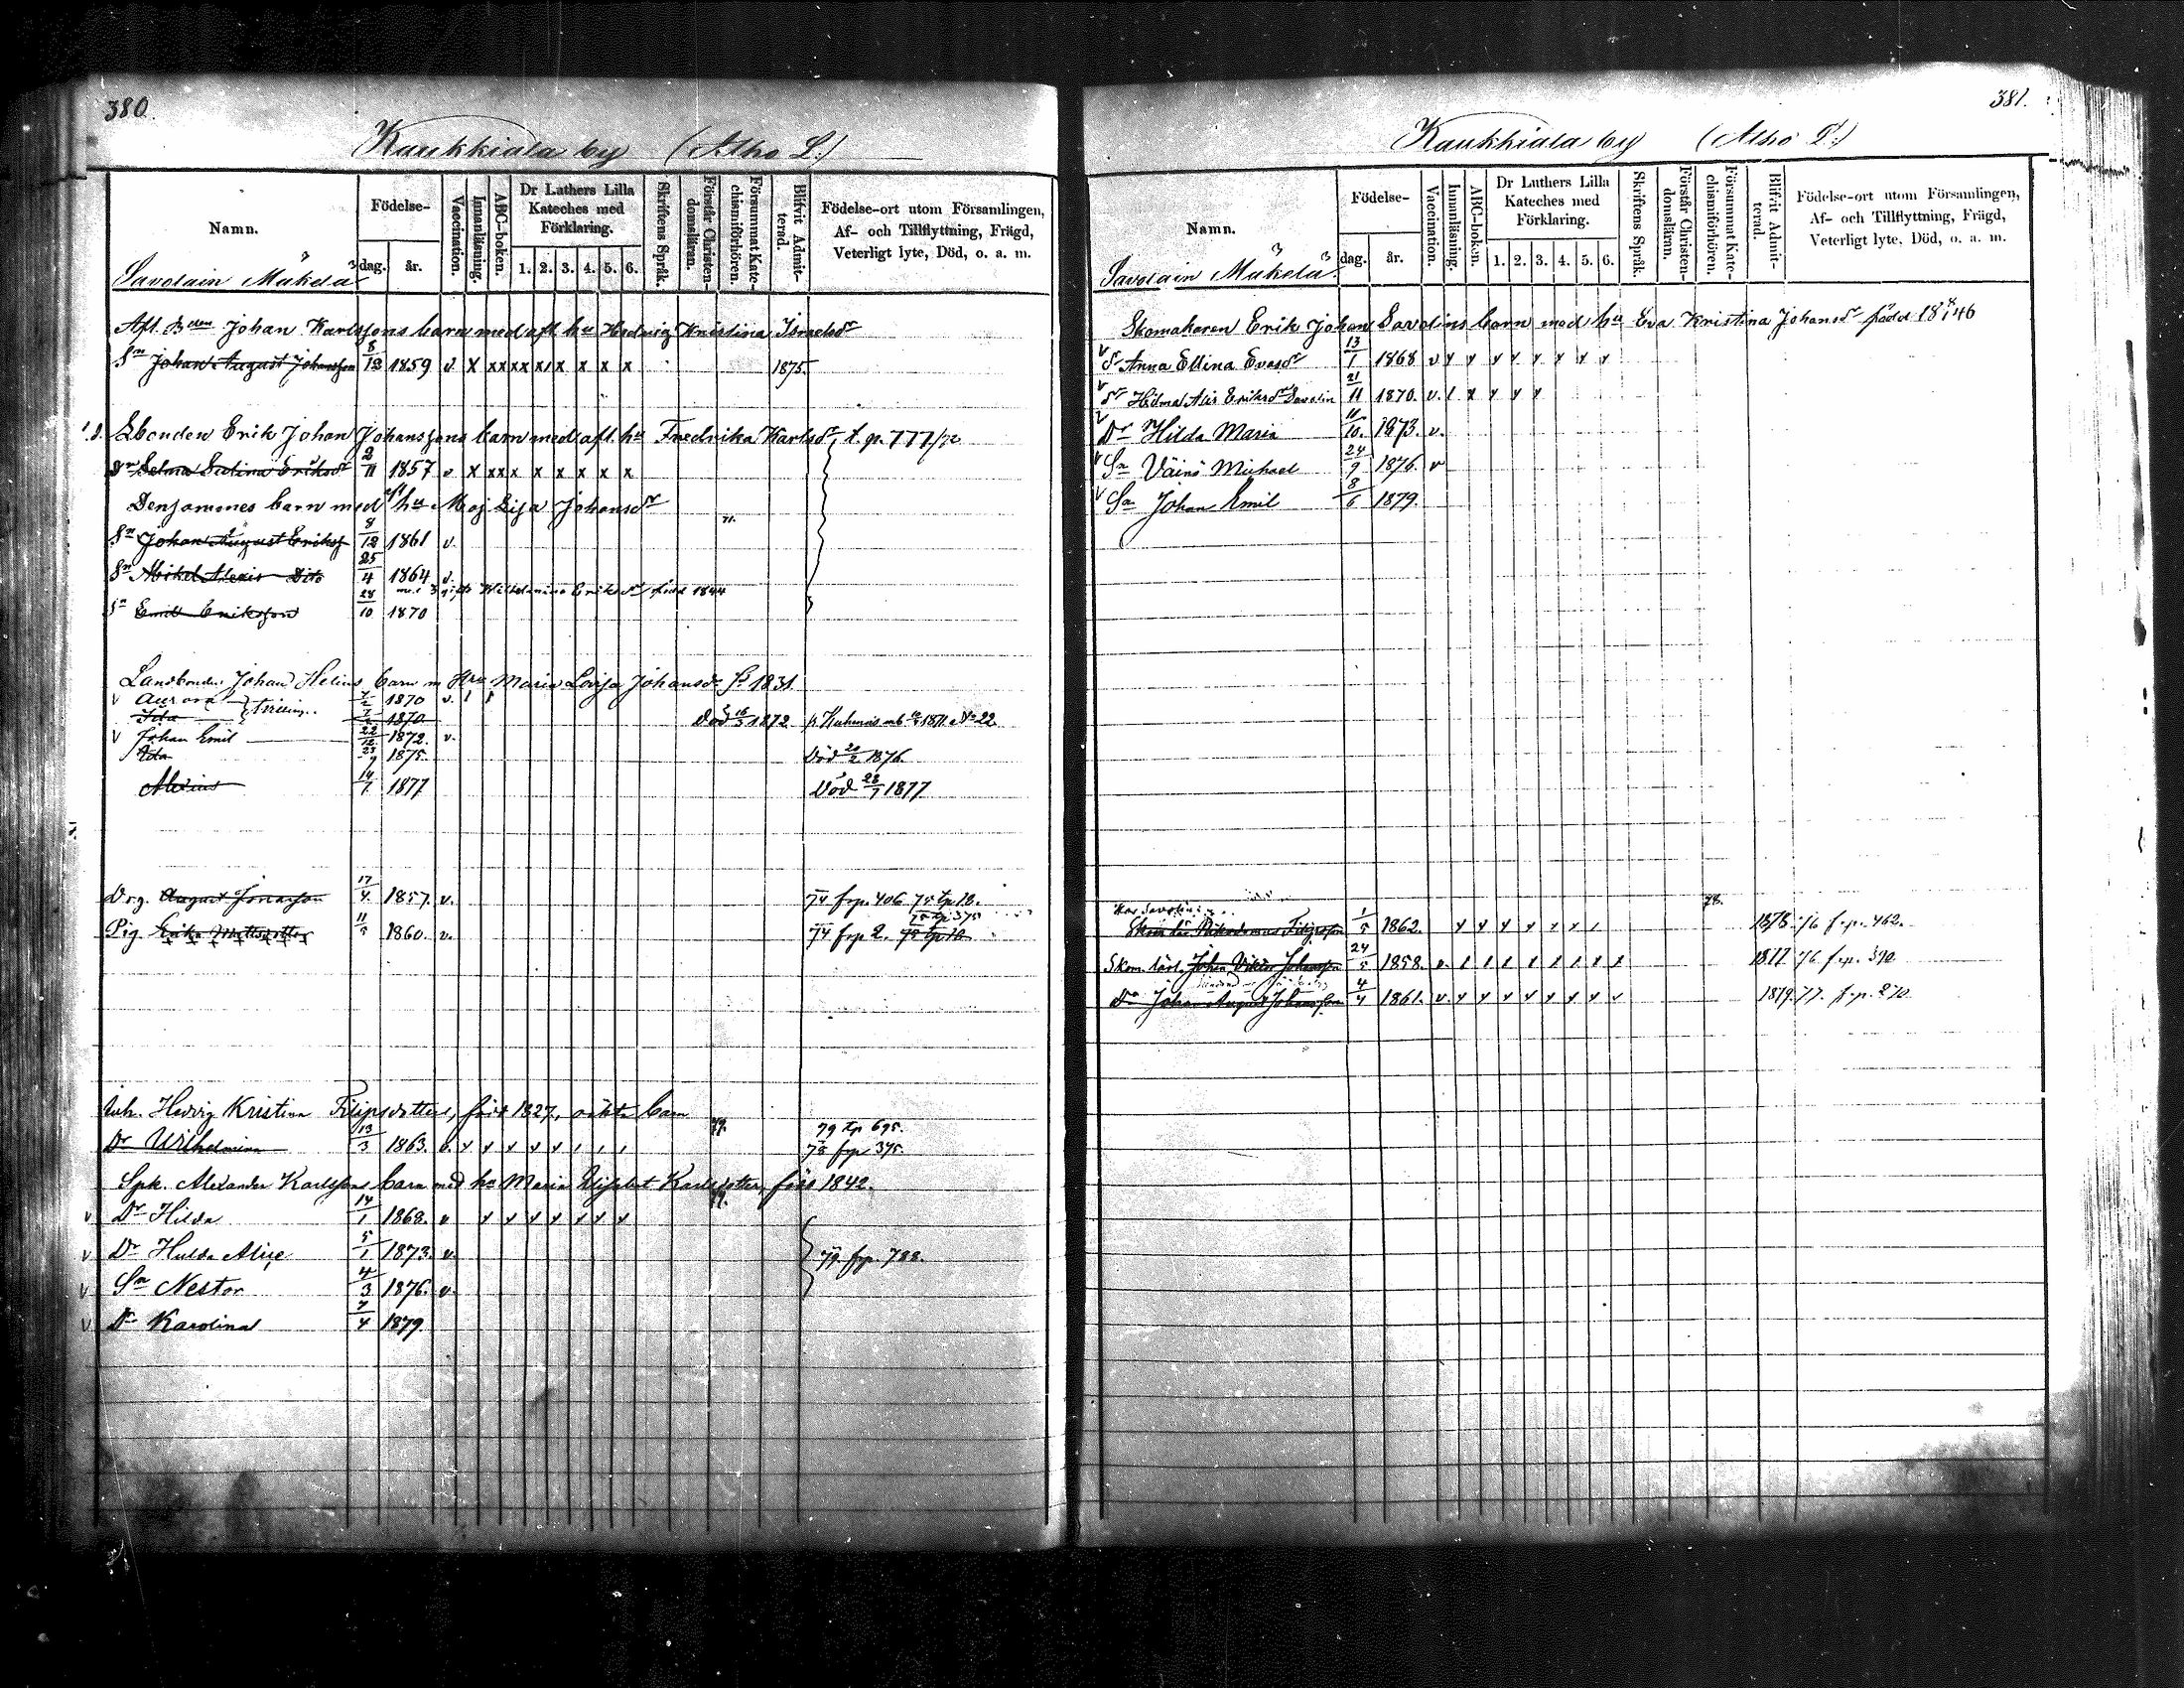 380.
Kaukkiala by (Alho L:)
Namn.
Födelse-
dag.
år.
Vaccination.
Innanläsning.
ABC-boken.
Dr Luthers Lilla Kateches med Förklaring.
1. 2. 3. 4. 5. 6.
Skriftens Språk.
Förstår Christendomsläran.
Försummat Katechismiförhören.
Blifvit Admitterad.
Födelse-ort utom Församlingen, Af- och Tillflyttning, Frägd, Veterligt lyte, Död, o. a. m.
Savolain Mäkelä
Afl. Bden Johan Karlssons barn med afl. hu Hedvig Kristina Israelsdr
Sn Johan August Johansson 8/12 1859 v X xx xx x x x x x 1875.
Lbonden Erik Johan Johanssons barn med afl. hu Fredrika Karlsdr, t. p. 777/72
Dr Selma Gustina Eriksdr 2/11 1857 v X xx x x x x x x
Densammes barn med hu Maj Lisa Johansdr
71.
Sn Johan August Erikss 8/12 1861 v.
Sn Mikel Alexis Dito 25/4 1864 v.
med 3 gifte Wilhelmina Eriksdr född 1844
Sn Emil Eriksson 28/10 1870
Landbonden Johan Helins barn m Hu Maria Lovisa Johansdr f. 1831
v Aurora 7/2 1870 v. 1 1
Ida 7/2 1870 Död 16/3 1872
v Johan Emil 22/12 1872. v.
Ida 23/9 1875. Död 20/2 1876.
Alexius 14/7 1877 Död 28/7 1877
Drg. August Jonasson 17/4 1857. v. 74 frp. 406. 75 tp 10.
75 tp 375
Pig. Erika Mattsdotter 11/5 1860. v. 74 frp 2. 75 tp 10
Inh. Hedvig Kristina Filipsdotter, född 1827, oäkta barn
79.
79 tp 695.
Dr Wilhelmina 13/3 1863. v. 78 frp 375.
Spk. Alexander Karlssons barn med hu Maria Elisabet Karlsdotter, född 1842.
v Dr Hilda 14/1 1868. v
v Dr Hulda Alice 5/1 1873. v. 79. frp. 788.
v Sn Nestor 4/3 1876. v.
v Dr Karolina 7/4 1879.
381.
Kaukkiala by (Alho L:)
Namn.
Födelse-
dag.
år.
Vaccination.
Innanläsning.
ABC-boken.
Dr Luthers Lilla Kateches med Förklaring.
1. 2. 3. 4. 5. 6.
Skriftens Språk.
Förstår Christendomsläran.
Försummat Katechismiförhören.
Blifvit Admitterad.
Födelse-ort utom Församlingen, Af- och Tillflyttning, Frägd, Veterligt lyte, Död, o. a. m.
Savolain Mäkelä
Skomakaren Erik Johan Savolins barn med hu Eva Kristina Johansdr född 18 4/1 46
v Dr Anna Ellina Evasdr 13/1 1868 v
v Dr Hilma Alis Eriksdr Savolin 21/11 1870. v.
v Dr Hilda Maria 11/10. 1873. v.
v Sn Väinö Michael 24/9 1876. v
v Sn Johan Emil 8/6 1879.
78.
Nikodemus Filipsson 1/5 1862. 1878. 76 frp. 462.
Skom. lärl. Johan Viktor Johansson 24/5 1858. v. 1877 76 frp. 390.
Do Johan August Johansson 4/4 1861. v. 1879. 77. frp. 270.